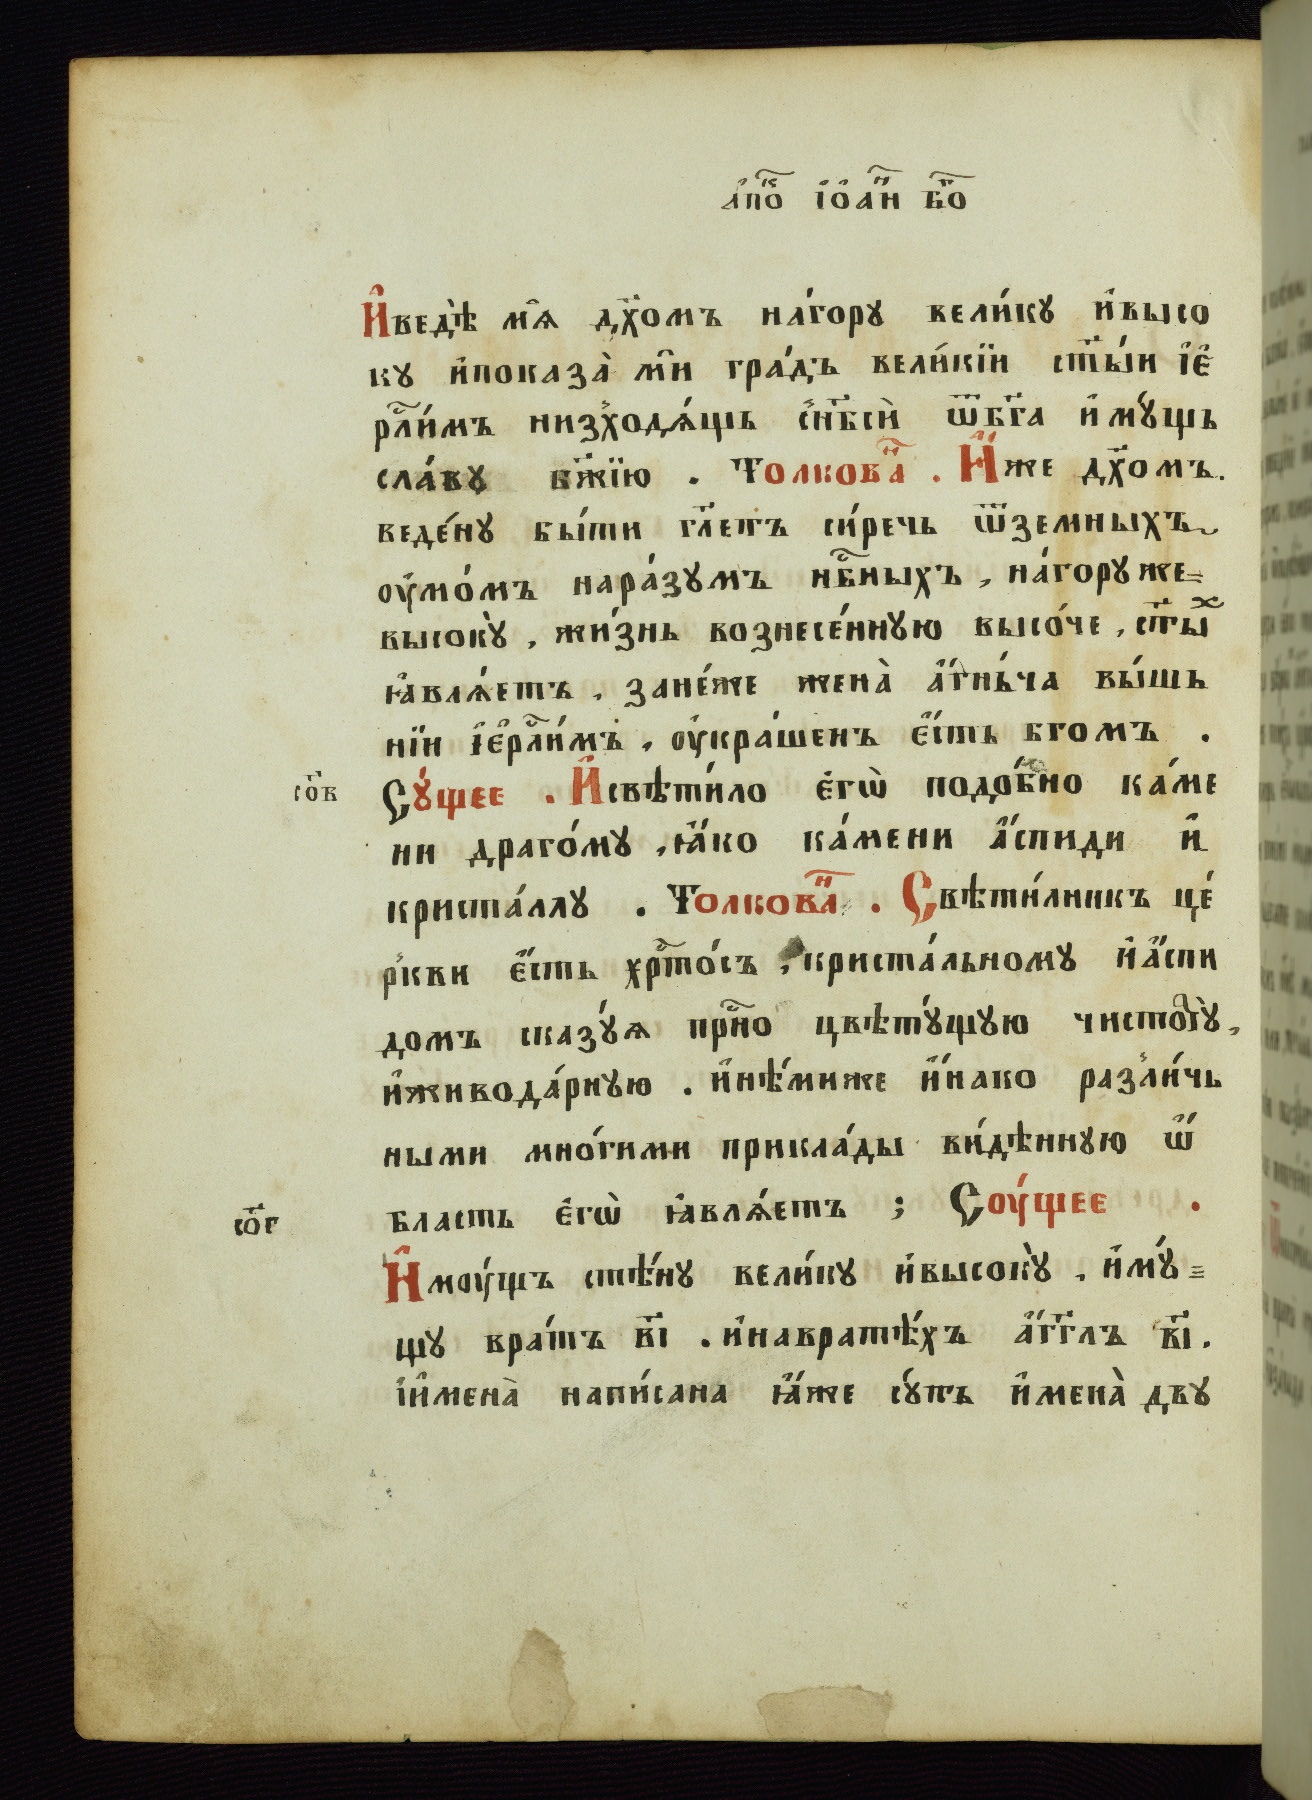 а҆пⷦ҇о і҆ѡ҆аⷩ҇н бг҃о
И҆ведѐ мѧ̑ дх҃омъ на́гору вели́ку и҆высо
ку и҆показа̀ ми̑ гра́дъ вели́кїи ст҃ы́и і҆є҆
рⷭ҇ли́мъ низходѧ́щь с̾нб҃сѝ ѿбг҃а и҆мꙋ́щь
сла́ву бж҃їю . Толковаⷩ҇ . И҆́же дх҃омъ.
веде́ну бы́ти гл҃етъ си́речь ѿземныхъ
оу҆мо́мъ нара́зумъ нбⷭ҇ныхъ , на́горуже=
высокꙋ̀ , жи́знь вознесе́нную высо́че , ст҃ыⷯ
ꙗ҆влѧ́етъ . зане́же жена̀ а҆́гньча вы́шь
нїи і҆є҆рⷭ҇ли́мъ . оу҆кра́шенъ є҆́сть бгомъ .
со҃в Сꙋ́щее . И҆свѣти́ло є҆гѡ̀ подо́бно ка́ме
ни драго́му , ꙗ҆́ко ка́мени а҆́спиди и҆
криста́ллу . Толковаⷩ҇ . Свѣти́лникъ це́
ркви є҆́сть хрⷭ҇то́съ , криста́льному и҆а҆́спи
домъ сказꙋ́ѧ прⷭ҇но цвѣтꙋ́щую чистотꙋ̀ ,
и҆живода́рную . и҆нѣ́миже и҆́нако разли́чь
ными мно́гими прикла́ды ви́дѣнную ѡ҆́
бласть є҆гѡ̀ ꙗ҆влѧ́етъ ; Соу́щее .
со҃г И҆моу́щъ стѣ́ну вели́ку и҆высокꙋ̀ . и҆мꙋ́=
щу вра́тъ в҃і . и҆навратѣ́хъ а҆́гг҃лъ в҃і .
і҆и҆мена̀ напи́сана ꙗ҆́же сꙋ́ть и҆мена̀ дву